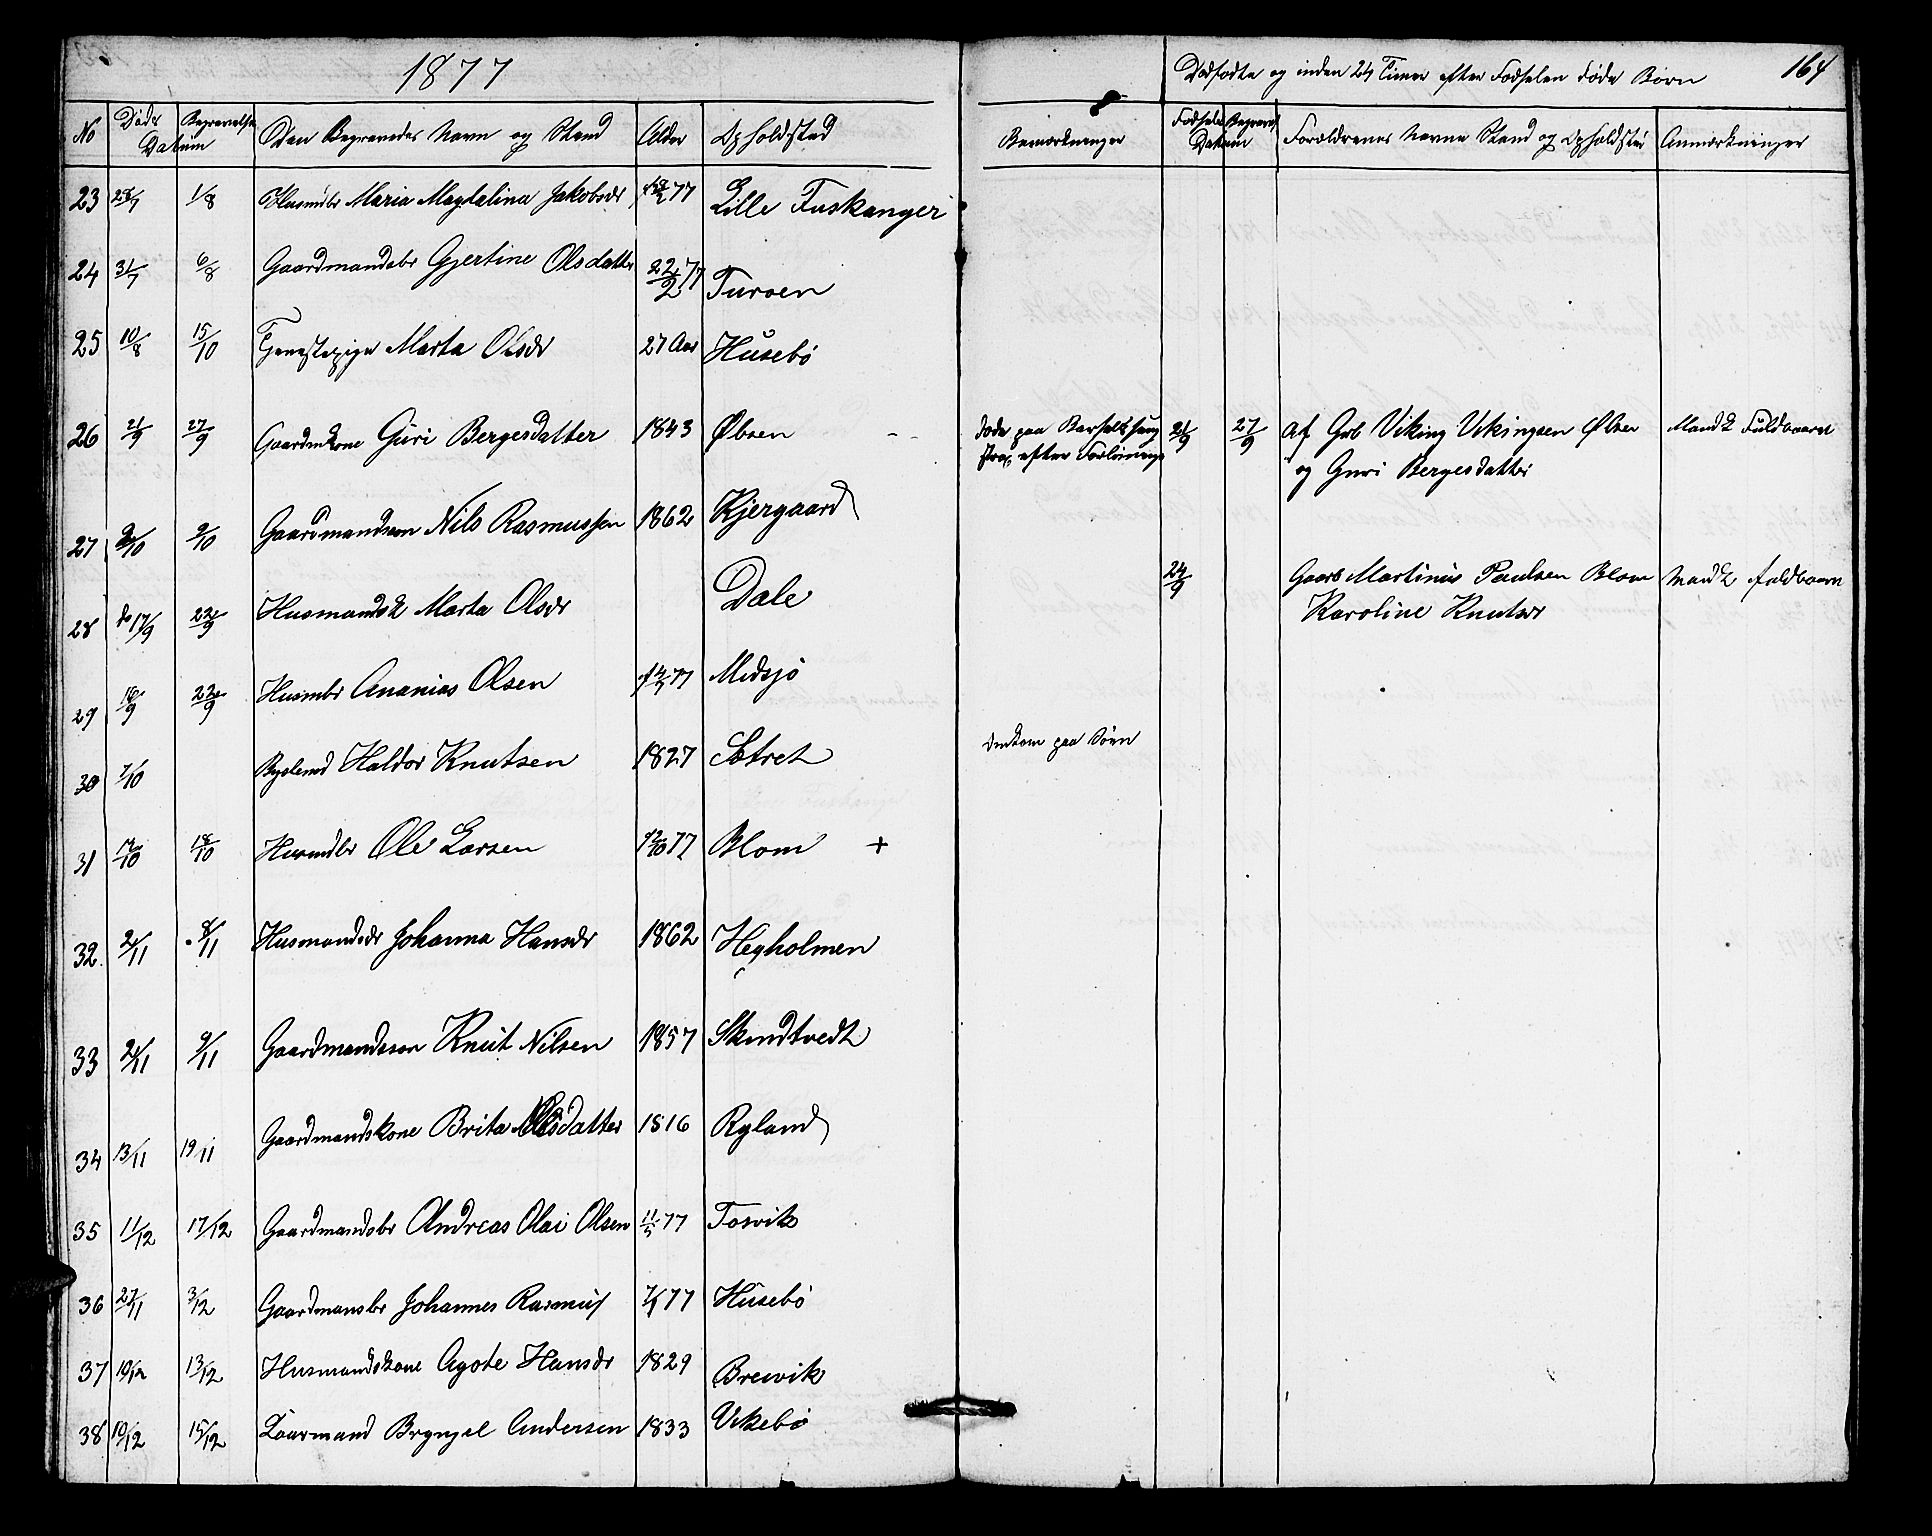 1877
Dødfødte og inden 24 Timer efter Fødselen døde Børn 164
No Døds Begravelses Den Begravedes Navn og Stand Alder Opholdsted Bemærkninger Fødsels Begravel Forældrenes Navne Stand og Opholdsted Anmærkninger
Datum Datum
23 28/7 1/8 Husmbr Maria Magdalina Jakobsdr 77 Lille Fuskanger
24 31/7 6/8 Gaardmandsbr Gjertine Olsdatter 22/2 77 Turoen
25 10/8 15/10 Tjenestepige Marta Olsdr 27 Aar Husebö
26 21/9 27/9 Gaardmkone Guri Bergesdatter 1843 Øbsen - - døde paa Barselseng 21/9 27/9 af Grb Viking Vikingsen Øbsen Mandk Fuldbaaren
strax efter Forløsning og Guri Bergesdatter
27 2/10 9/10 Gaardmandssøn Nils Rasmussen 1862 Kjergaard
24/9 Gaarb Martinus Paulsen Blom Mandk fuldbaaren
28 do 17/9 22/9 Husmandsk Marta Olsdr Dale Karoline Knutsdr
29 16/9 23/9 Husmbr Ananias Olsen 77 Midsjö
30 7/10 Haldor Knutsen 1827 Sótret Omkom paa Søen
31 14/10 18/10 Husmdbr Ole Larsen 12/10 77 Blom +
32. 2/11 8/11 Husmandsdr Johanna Hansdr 1862 Hegholmen
33 2/11 9/11 Gaardmandssøn Knut Nilsen 1857 Skindtvedt
34 13/11 19/11 Gaardmandskone Brita Olsdatter 1816 Ryland
35 11/12 17/12 Gaardmandsbr Andreas Olai Olsen 11/5 77 Tosvik
36 27/11 3/12 Gaardmansbr Johannes Rasmus 77 Husebö
37 10/12 13/12 Husmandskone Agote Hansdr 1829 Breivik
38 10/12 15/12 Brynjel Andersen 1833 Vikebö